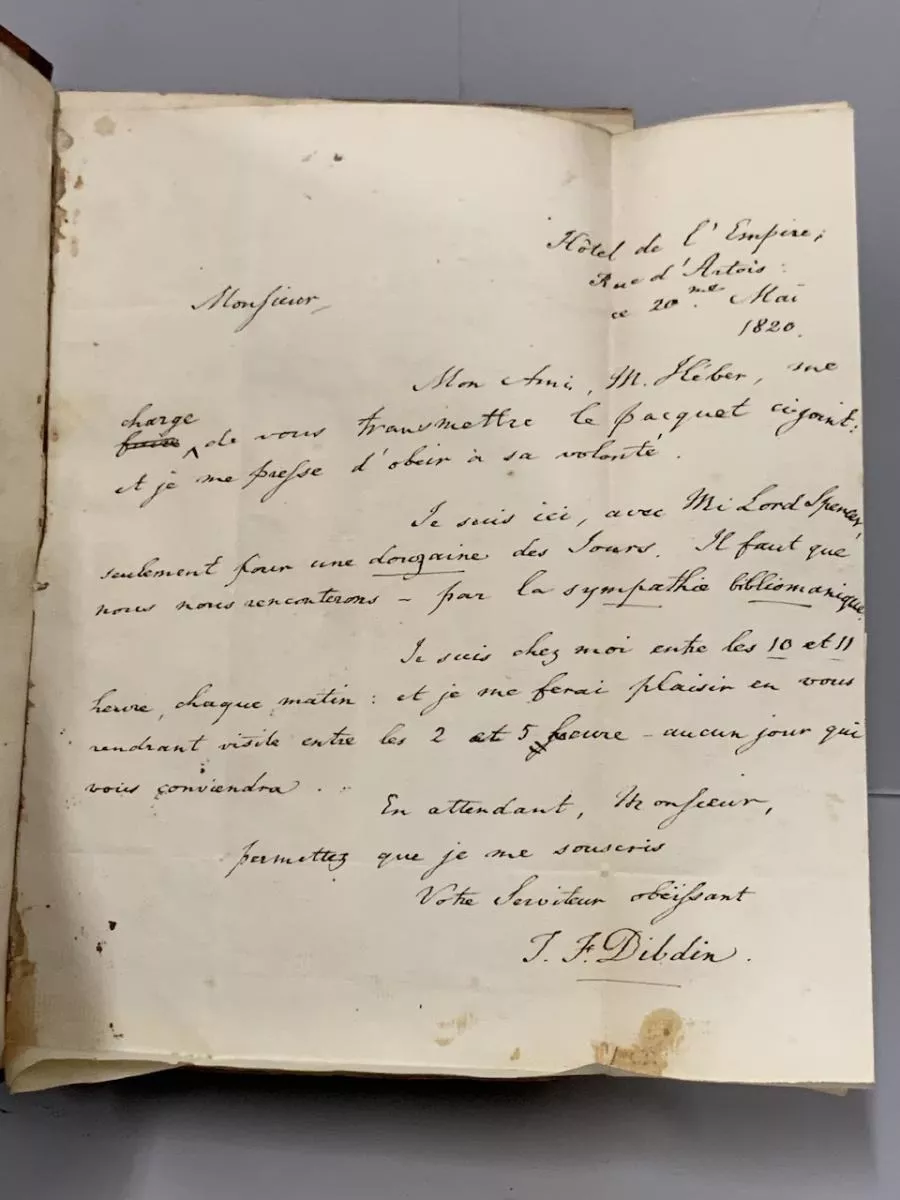 Hôtel de l'Empire;
Rue d'Artois:
ce 20.me Mai
1820.
Monsieur,
Mon Ami, M. Héber, me
charge
faire de vous transmettre le pacquet ci-joint:
et je me presse d'obeir à sa volonté.
Je suis ici, avec Mi Lord Spencer,
seulement pour une douzaine des Jours. Il faut que
nous nous renconterons - par la sympathie bibliomanique.
Je suis chez moi entre les 10 et 11
heure, chaque matin: et je me ferai plaisir en vous
rendrant visite entre les 2 et 5 heure - aucun jour qui
vous conviendra.
En attendant, Monsieur,
permettez que je me souscris
Votre Serviteur obëissant
T. F. Dibdin.